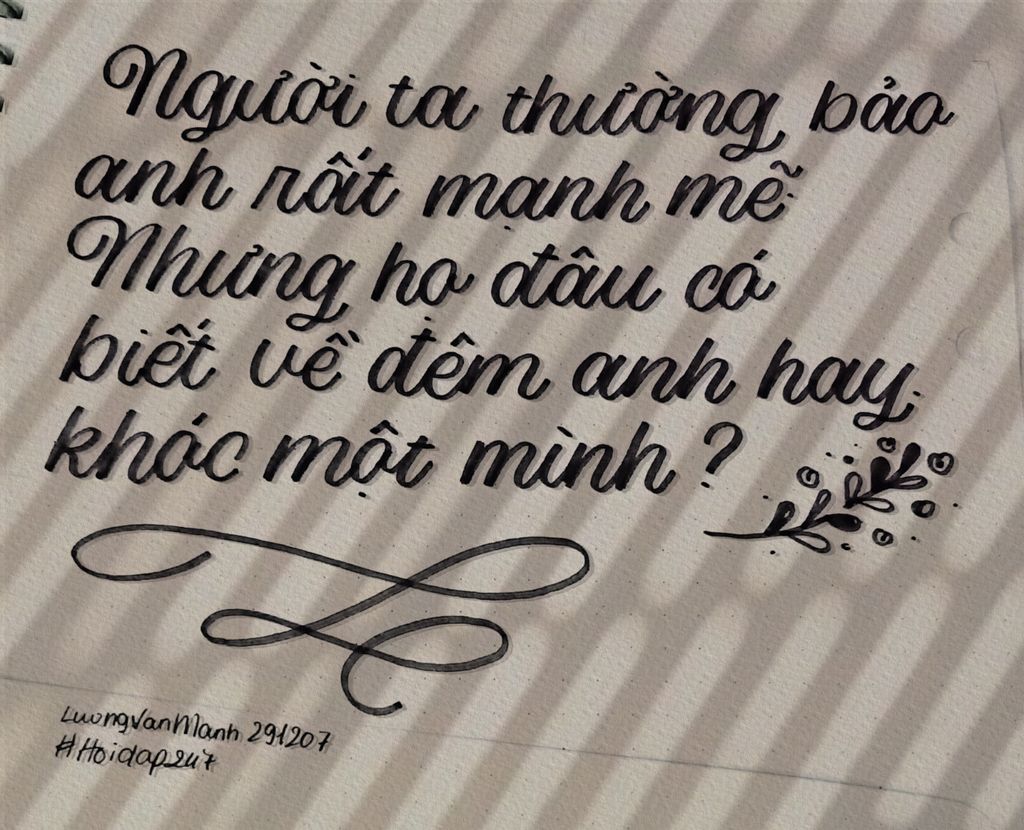 Người ta thường bảo
anh rất mạnh mẽ
Nhưng họ đâu có
biết về đêm anh hay
khóc một mình ?
LuongVanManh 291207
#Hoidap247